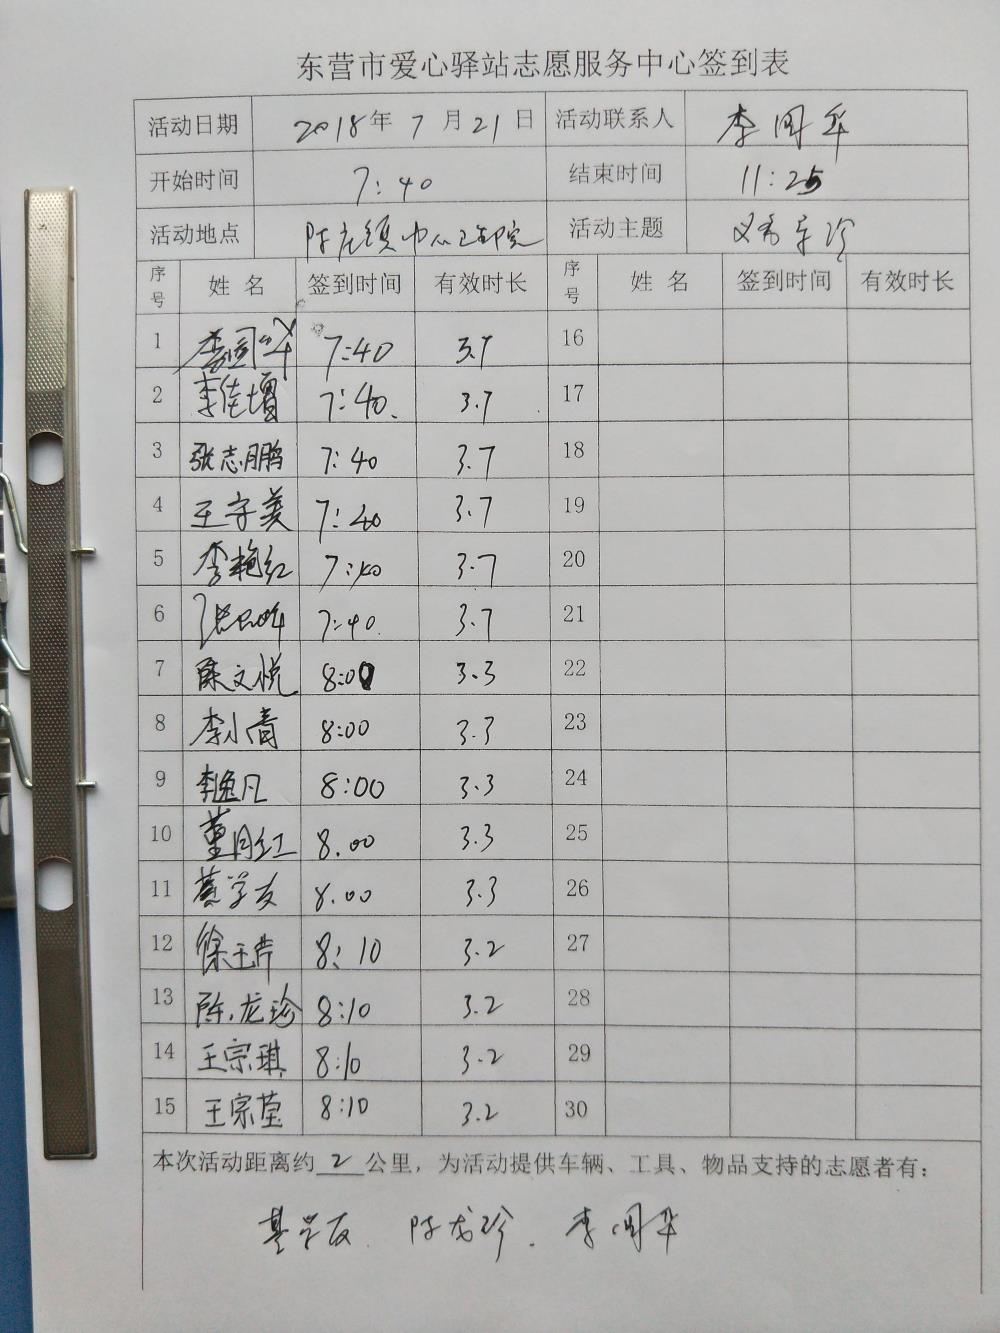 东营市爱心驿站志愿服务中心签到表
活动日期 2018年 7 月 21 日 活动联系人 李国华
开始时间 7:40 结束时间 11:25
活动地点 陈庄镇中心卫生院 活动主题
序号 姓 名 签到时间 有效时长 序号 姓 名 签到时间 有效时长
1 李国华 7:40 3.7 16
2 李佳增 7:40. 3.7 17
3 张志鹏 7:40 3.7 18
4 王守美 7:40 3.7 19
5 李艳红 7:40 3.7 20
6 7:40 3.7 21
7 陈文悦 8:00 3.3 22
8 李小青 8:00 3.3 23
9 李逸凡 8:00 3.3 24
10 董月红 8.00 3.3 25
11 学友 8.00 3.3 26
12 徐玉芹 8:10 3.2 27
13 陈龙珍 8:10 3.2 28
14 王宗琪 8:10 3.2 29
15 王宗莹 8:10 3.2 30
本次活动距离约 2 公里，为活动提供车辆、工具、物品支持的志愿者有：
学友 陈龙珍. 李国华